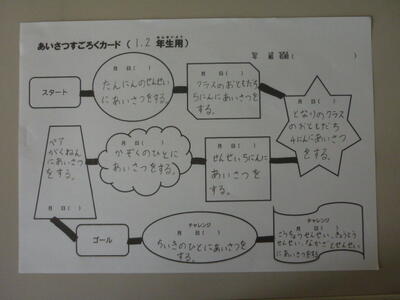 あいさつすごろくカード ( 1.2 年生用)
ねんせいよう
年 組 ( )
スタート
月 日 ( )
たんにんのせんせい
にあいさつをする。
月 日 ( )
クラスのおともだち
5にんにあいさつを
する。
月 日 ( )
となりのクラス
のおともだち
4にんにあいさつ
をする。
月 日 ( )
せんせい5にんに
あいさつを
する。
月 日 ( )
かぞくのひとに
あいさつをする。
ペア
がくねん
にあいさつ
をする。
月 日 ( )
ゴール
チャレンジ
月 日 ( )
ちいきのひとにあいさつを
する。
チャレンジ
月 日 ( )
こうちょうせんせい、きょうとう
せんせい、
せんせい
にあいさつをする。